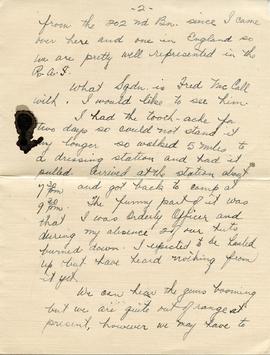 -2-
from the 202nd Bn. since I came
over here and one in England so
we are pretty well represented in the
R.A.F.
What Sqdn. is Fred McCall
with. I would like to see him.
I had the tooth-ache for
two days so could not stand it
any longer so walked 5 miles to
a dressing station and had it
pulled. Arrived at the station abt
7 30 pm and got back to camp at
9 30 pm. The funny part of it was
that I was Orderly Officer and
during my absence one of our huts
burned down. I expected to be hauled
up but have heard nothing from
it yet.
We can hear the guns booming
but we are quite out of range at
present, however we may have to